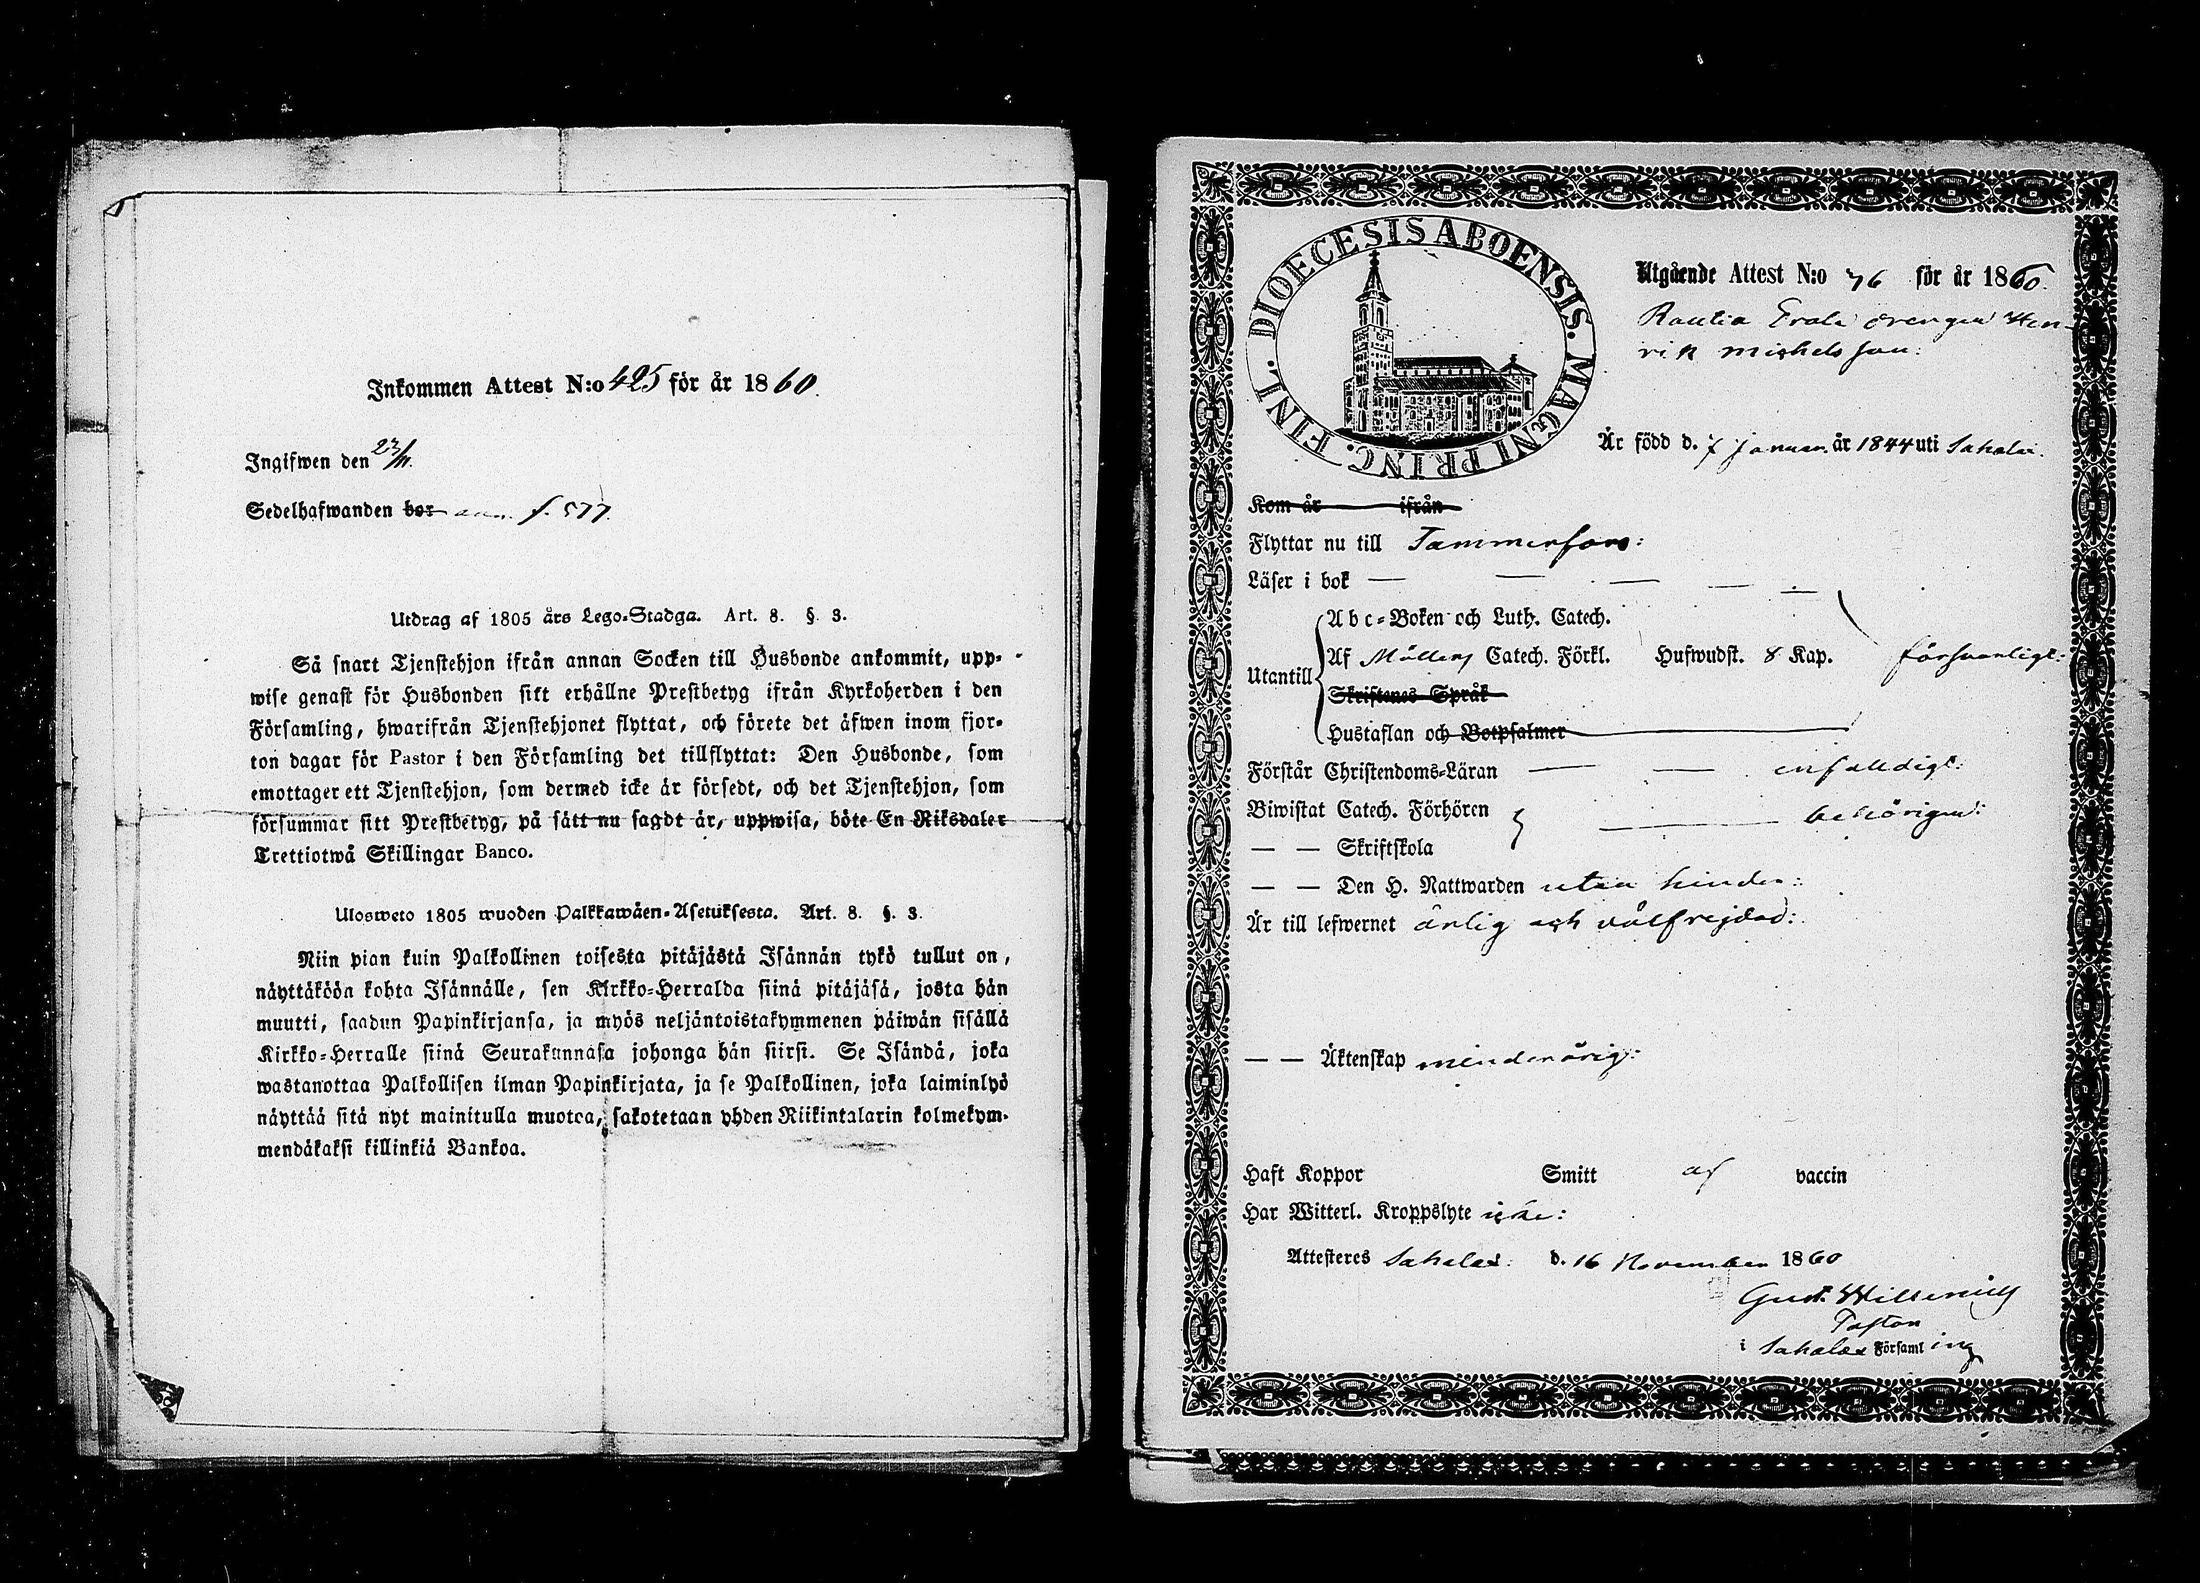 Inkommen Attest N:o 425 för år 1860.
Ingifwen den 23/11.
Sedelhafwanden bor ann. f. 577.
Utdrag af 1805 års Lego-Stadga. Art. 8. §. 3.
Så snart Tjenstehjon ifrån annan Socken till Husbonde ankommit, upp-
wise genast för Husbonden sitt erhållne Prestbetyg ifrån Kyrkoherden i den
Församling, hwarifrån Tjenstehjonet flyttat, och förete det äfwen inom fjor-
ton dagar för Pastor i den Församling det tillflyttat: Den Husbonde, som
emottager ett Tjenstehjon, som dermed icke är försedt, och det Tjenstehjon, som
försummar sitt Prestbetyg, på sätt nu sagdt är, uppwisa, böte En Riksdaler
Trettiotwå Skillingar Banco.
Ulosweto 1805 wuoden Palkkawäen-Asetuksesta. Art. 8. §. 3.
Niin pian kuin Palkollinen toisesta pitäjästä Isännän tykö tullut on,
näyttäköön kohta Isännälle, sen Kirkko-Herralda siinä pitäjäsä, josta hän
muutti, saadun Papinkirjansa, ja myös neljäntoistakymmenen päiwän sisällä
Kirkko-Herralle siinä Seurakunnasa johonga hän siirsi. Se Isändä, joka
wastanottaa Palkollisen ilman Papinkirjata, ja se Palkollinen, joka laiminlyö
näyttää sitä nyt mainitulla muotoa, sakotetaan yhden Riikintalarin kolmekym-
mendäkaksi killinkiä Bankoa.
DIOECESIS ABOENSIS. MAGNI PRINC. FINL.
Utgående Attest N:o 76 för år 1860.
Rautia Erola drengen Hen-
rik Michelsson:
Är född d. 7 Januari år 1844 uti Sahalax.
Kom år ifrån
Flyttar nu till Tammerfors:
Läser i bok — — — — —
Abc-Boken och Luth. Catech.
Utantill Af Möllers Catech. Förkl. Hufwudst. 8 Kap. försvarligt:
Skriftenes Språk
Hustaflan och Botpsalmer
Förstår Christendoms-Läran — — enfaldigt:
Biwistat Catech. Förhören — behörigen:
— — Skriftskola
— — Den H. Nattwarden utan hinder:
Är till lefwernet ärlig och välfrejdad:
— — Äktenskap minderårig:
Haft Koppor Smitt af vaccin
Har Witterl. Kroppslyte icke:
Attesteres Sahalax: d. 16 November 1860
Gust.
Pastor
i Sahalax Församling